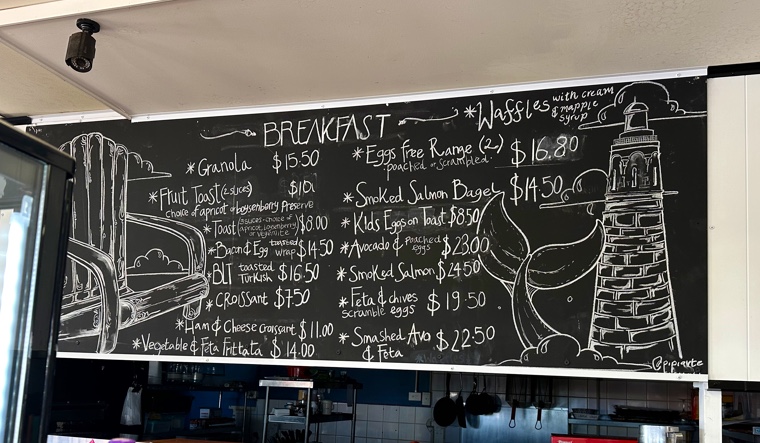 BREAKFAST
*Waffles with cream
& mapple
syrup
*Granola $15.50
*Fruit Toast (2 slices) $10
choice of apricot or boysenberry Preserve
*Toast (2 slices - choice of
apricot, boysenberry
or vegemite) $8.00
*Bacon & Egg toasted wrap $14.50
*BLT toasted
Turkish $16.50
*CROISSANT $7.50
*Ham & Cheese croissant $11.00
*Vegetable & Feta Frittata $14.00
*Eggs Free Range (2)
poached or scrambled. $16.80
*Smoked Salmon Bagel $14.50
*Kids Eggs on Toast $8.50
*Avocado & poached
eggs $23.00
*Smoked Salmon $24.50
*Feta & chives
scramble eggs $19.50
*Smashed Avo
& Feta $22.50
@pipiarte